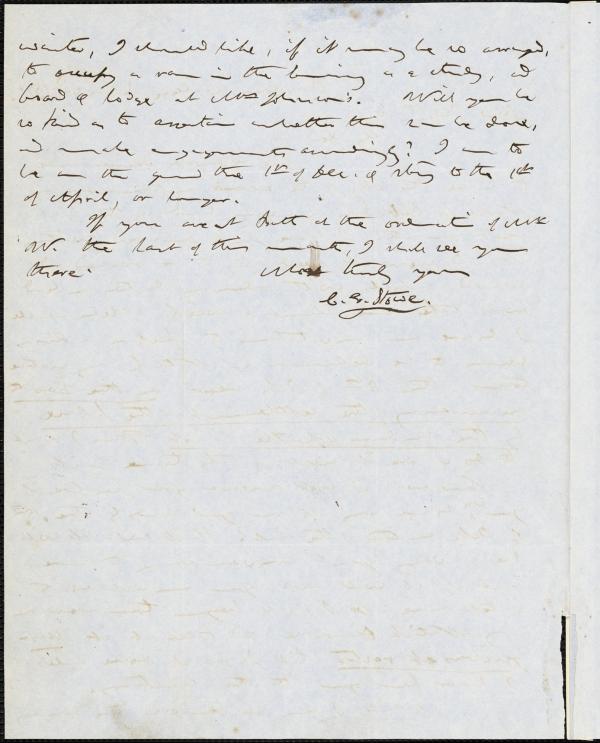 winter, I should like, if it may be so arranged,
to occupy a room in the building as a study, and
board & lodge at Mrs Johnson's. Will you be
so kind as to ascertain whether this can be done,
and make engagements accordingly? I am to
be on the ground the 1st of Dec. & stay to the 1st
of April, or longer.
If you are at Bath at the ordination of Mr
W. the last of this month, I shall see you
there. Most truly yours
C. E. Stowe.